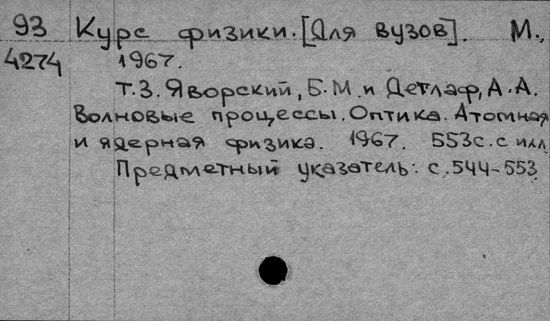 93 Курс физики. [Для вузов]. М.,
4274 1967.
Т.3. Яворский, Б.М. и Детлаф, А.А.
Волновые процессы. Оптика. Атомная
и ядерная физика. 1967. 553с. с илл
Предметный указатель: с. 544-553